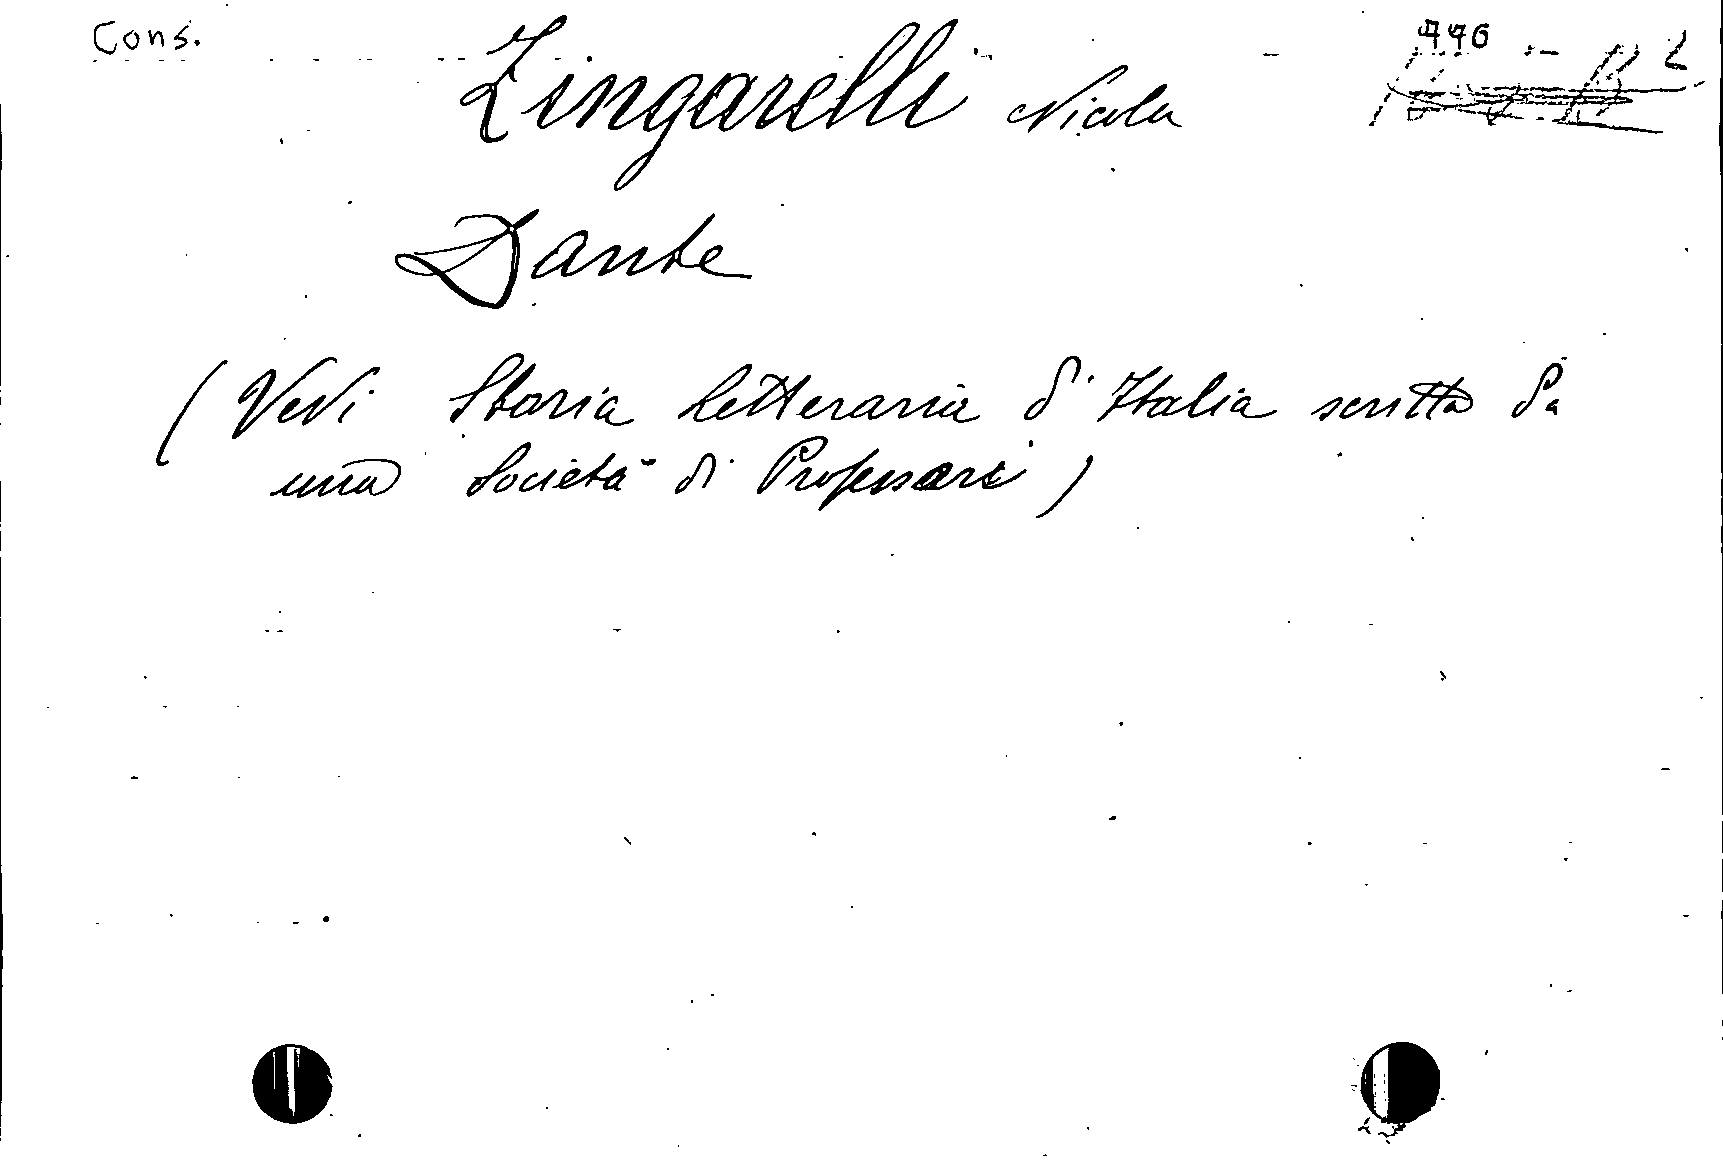 Cons.
Zingarelli Nicola
Dante
(Vedi Storia letteraria d'Italia scritta da
una Società di Professori)